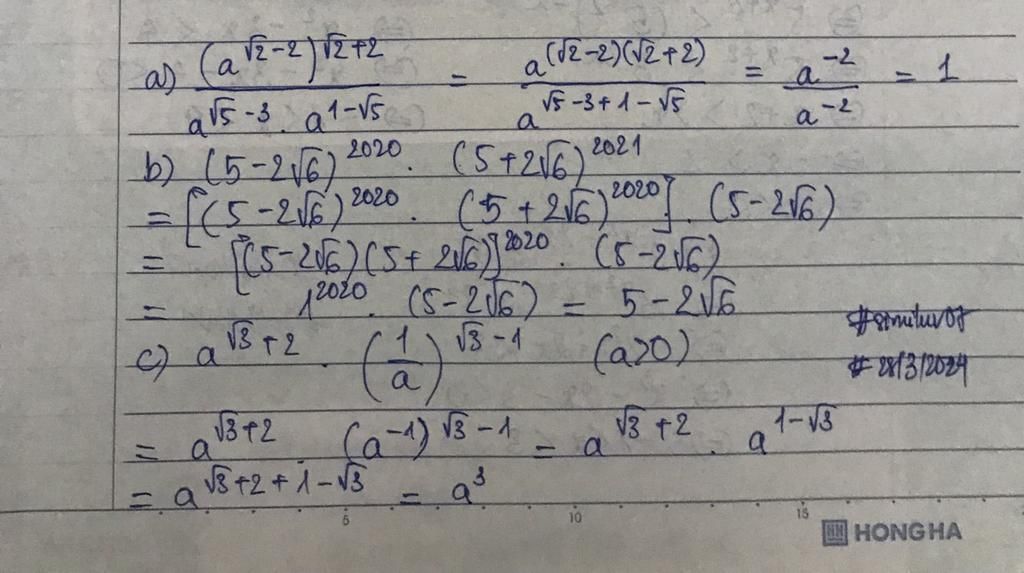 a) (a^{√2-2})^{√2+2} / (a^{√5-3} . a^{1-√5}) = a^{(√2-2)(√2+2)} / a^{√5-3+1-√5} = a^{-2} / a^{-2} = 1
b) (5-2√6)^{2020} . (5+2√6)^{2021}
= [(5-2√6)^{2020} . (5+2√6)^{2020}] . (5-2√6)
= [(5-2√6)(5+2√6)]^{2020} . (5-2√6)
= 1^{2020} . (5-2√6) = 5-2√6
c) a^{√3+2} . (1/a)^{√3-1} (a>0)
# 28/3/2024
= a^{√3+2} . (a^{-1})^{√3-1} = a^{√3+2} . a^{1-√3}
= a^{√3+2+1-√3} = a^3
5 10 15
HONG HA